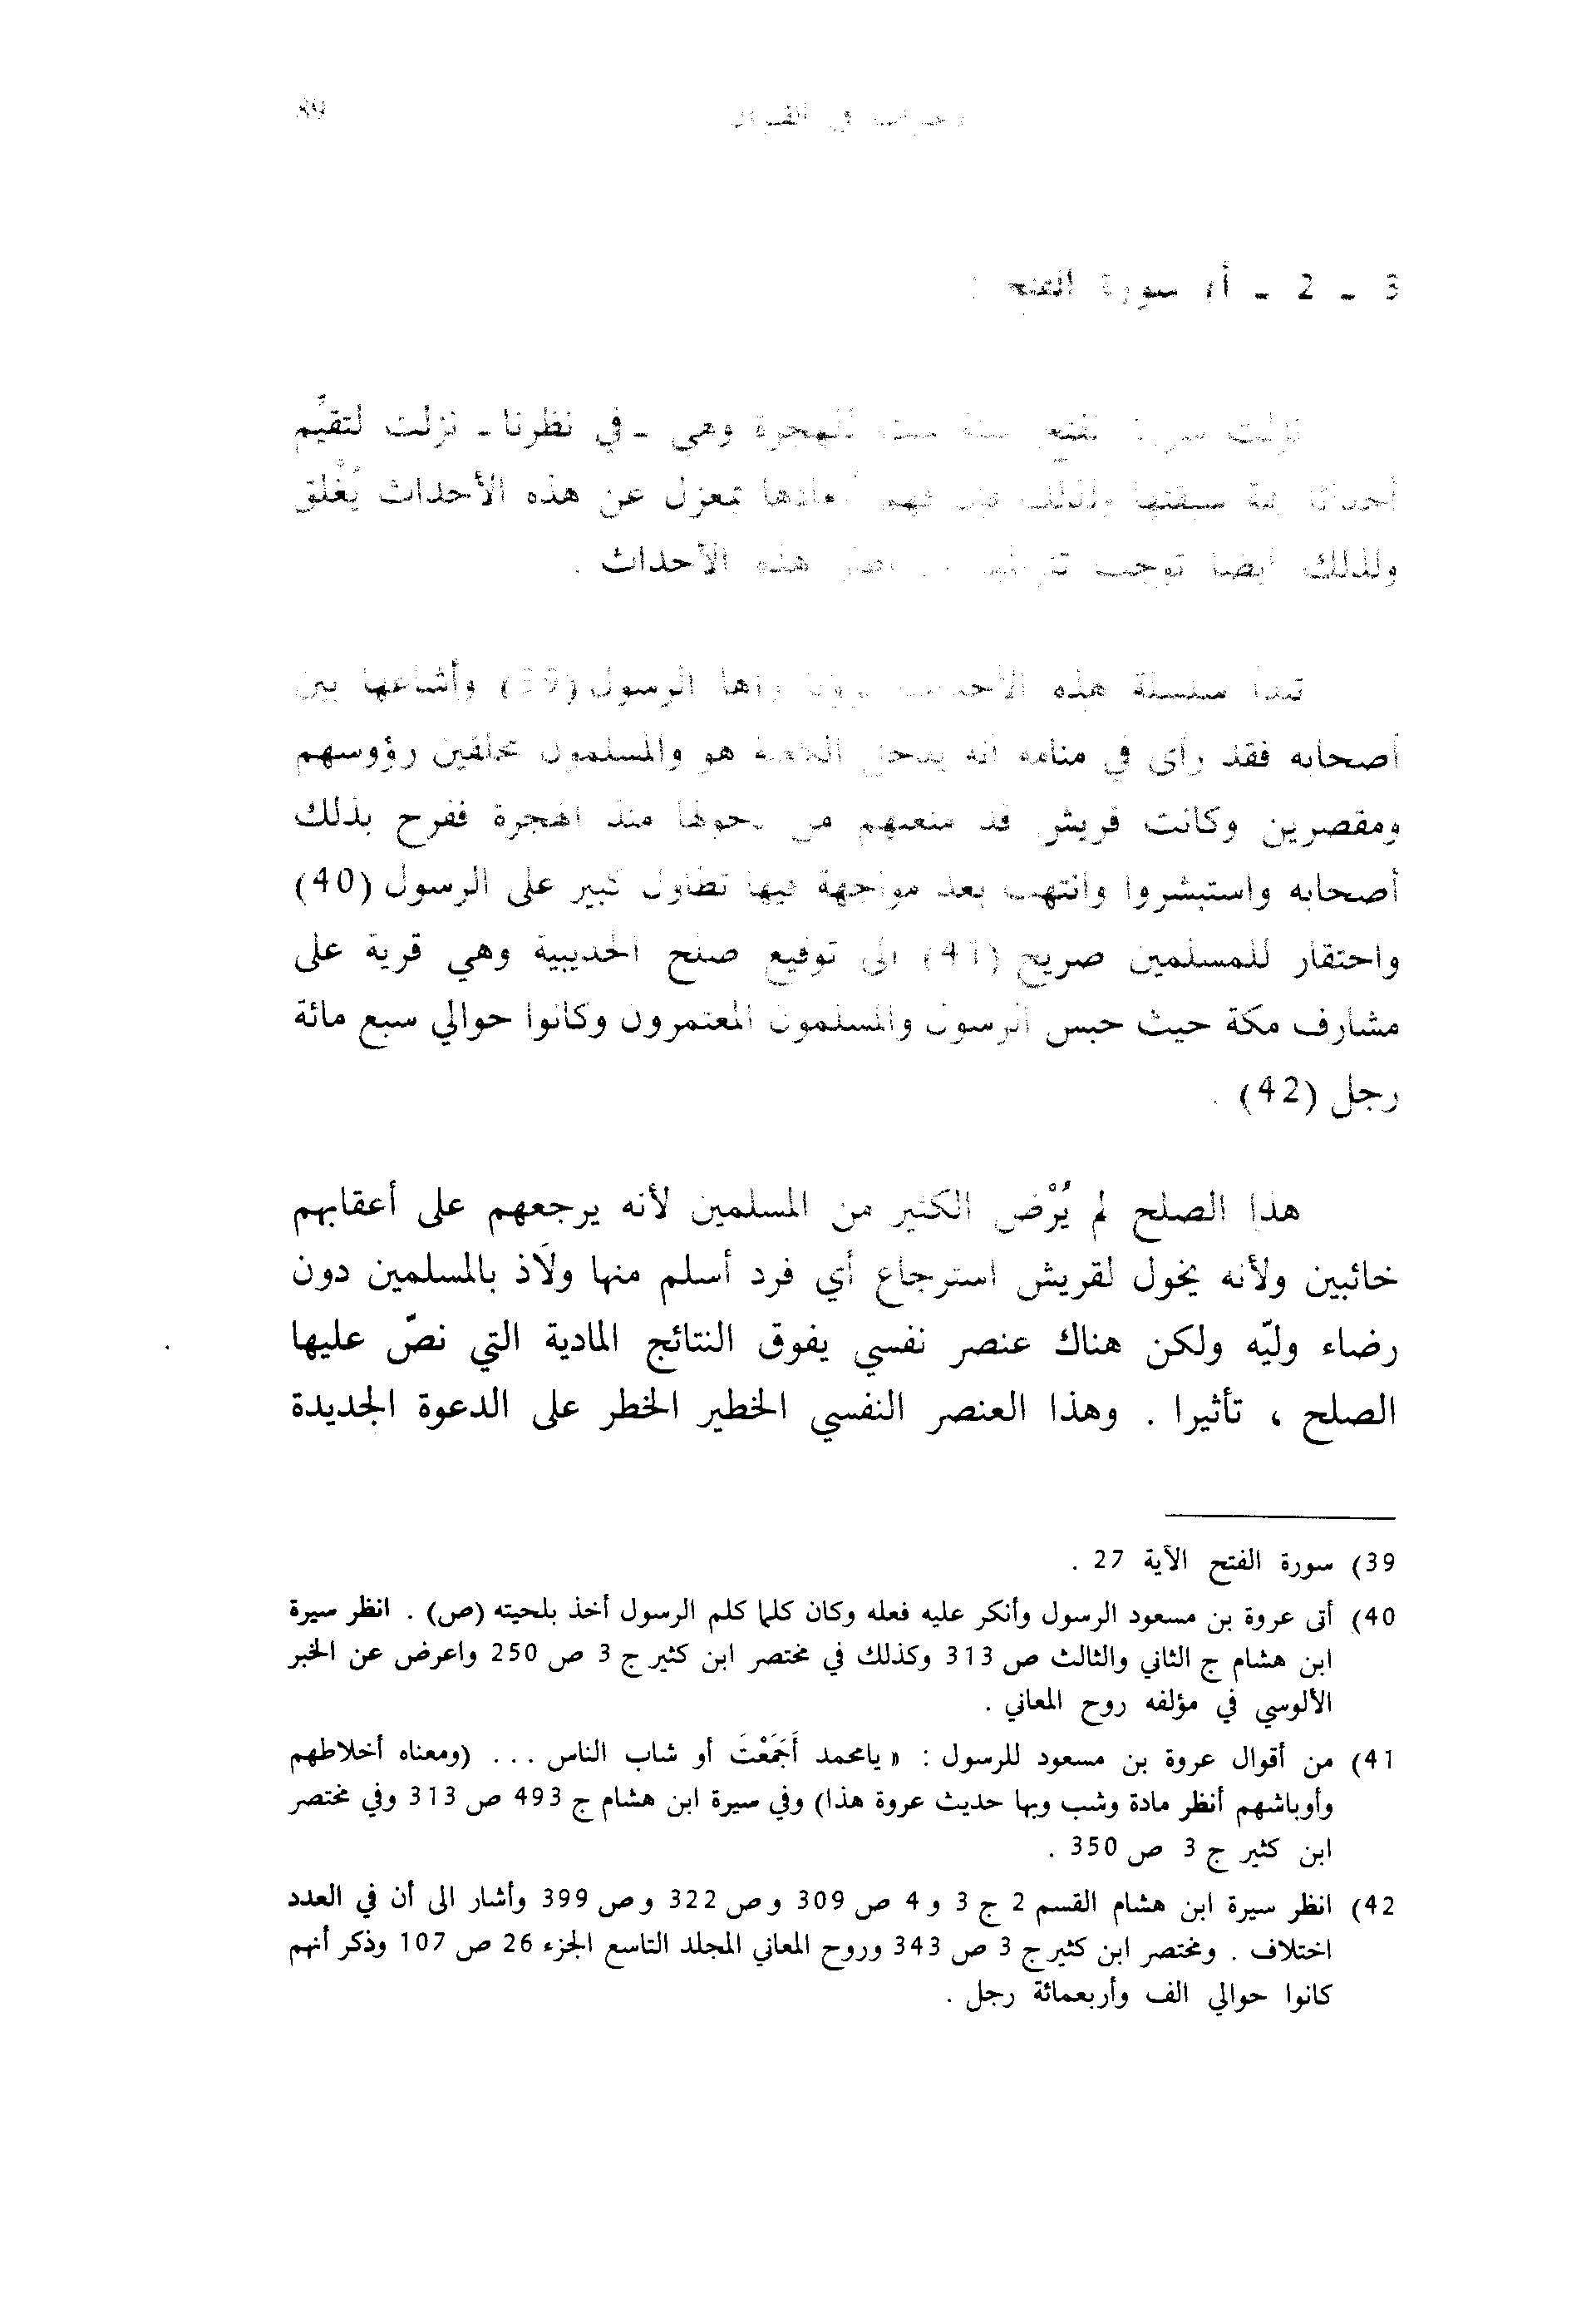 89
3 - 2 - أ) سورة الفتح :
نزلت سورة الفتح سنة ست للهجرة وهي - في نظرنا - نزلت لتقيِّم
سبقتها ولذلك فهم أبعادها بمعزل عن هذه الأحداث يُغْلق
ولذلك أيضا توجب هذه الأحداث .
تبدأ سلسلة هذه الأحداث برؤيا رآها الرسول (39) وأشاعها بين
أصحابه فقد رأى في منامه أنه يدخل الكعبة هو والمسلمون محلقين رؤوسهم
ومقصرين وكانت قريش قد منعتهم من دخولها منذ الهجرة ففرح بذلك
أصحابه واستبشروا وانتهت بعد مواجهة فيها تطاول كبير على الرسول (40)
واحتقار للمسلمين صريح (41) الى توقيع صلح الحديبية وهي قرية على
مشارف مكة حيث حبس الرسول والمسلمون المعتمرون وكانوا حوالي سبع مائة
رجل (42) .
هذا الصلح لم يُرْض الكثير من المسلمين لأنه يرجعهم على أعقابهم
خائبين ولأنه يخول لقريش استرجاع أي فرد أسلم منها ولَاذ بالمسلمين دون
رضاء وليّه ولكن هناك عنصر نفسي يفوق النتائج المادية التي نصّ عليها
الصلح ، تأثيرا . وهذا العنصر النفسي الخطير الخطر على الدعوة الجديدة
39) سورة الفتح الآية 27 .
40) أتى عروة بن مسعود الرسول وأنكر عليه فعله وكان كلما كلم الرسول أخذ بلحيته (ص) . انظر سيرة
ابن هشام ج الثاني والثالث ص 313 وكذلك في مختصر ابن كثير ج 3 ص 250 واعرض عن الخبر
الألوسي في مؤلفه روح المعاني .
41) من أقوال عروة بن مسعود للرسول : « يامحمد أَجَمَعْتَ أو شاب الناس ... (ومعناه أخلاطهم
وأوباشهم أنظر مادة وشب وبها حديث عروة هذا) وفي سيرة ابن هشام ج 493 ص 313 وفي مختصر
ابن كثير ج 3 ص 350 .
42) انظر سيرة ابن هشام القسم 2 ج 3 و 4 ص 309 و ص 322 و ص 399 وأشار الى أن في العدد
اختلاف . ومختصر ابن كثير ج 3 ص 343 وروح المعاني المجلد التاسع الجزء 26 ص 107 وذكر أنهم
كانوا حوالي الف وأربعمائة رجل .